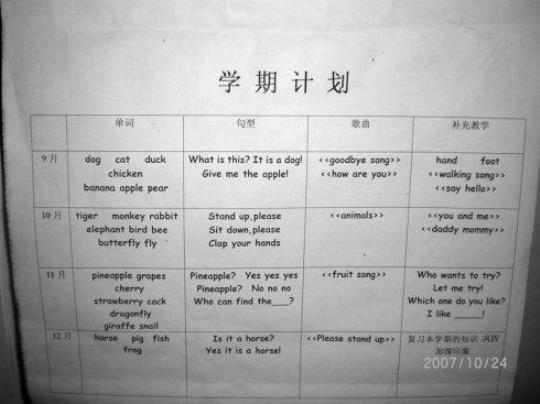 学期计划
单词 句型 歌曲 补充教学
9月 dog cat duck What is this? It is a dog! <<goodbye song>> hand foot
chicken Give me the apple! <<how are you>> <<walking song>>
banana apple pear <<say hello>>
10月 tiger monkey rabbit Stand up,please <<animals>> <<you and me>>
elephant bird bee Sit down,please <<daddy mommy>>
butterfly fly Clap your hands
11月 pineapple grapes Pineapple? Yes yes yes <<fruit song>> Who wants to try?
cherry Pineapple? No no no Let me try!
strawberry cock Who can find the___? Which one do you like?
dragonfly I like _____!
giraffe snail
12月 horse pig fish Is it a horse? <<Please stand up>> 复习本学期的知识 巩固
frog Yes it is a horse! 加深印象
2007/10/24